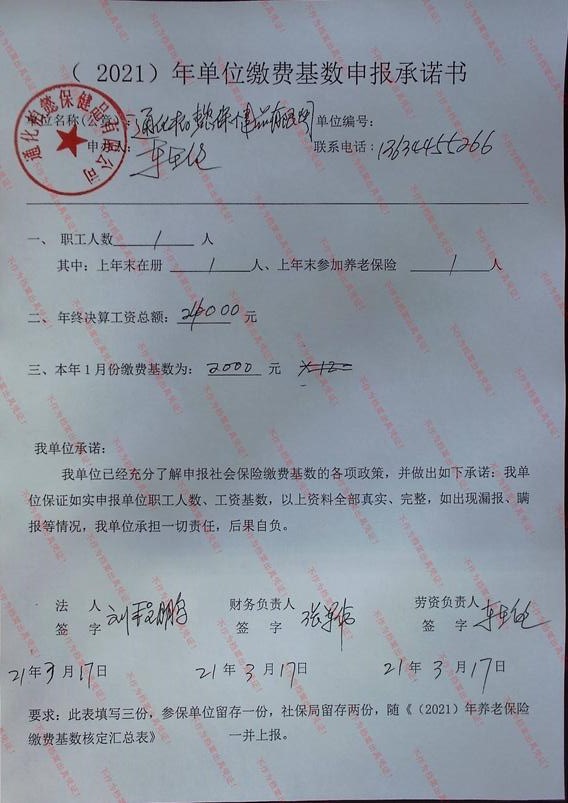 （ 2021）年单位缴费基数申报承诺书
单位名称(公章): 通化 懿保健品有限公司 单位编号:
申办人: 联系电话: 13634455266
一、 职工人数 1 人
其中: 上年末在册 1 人、上年末参加养老保险 1 人
二、 年终决算工资总额: 24000 元
三、本年 1 月份缴费基数为: 2000 元
我单位承诺:
我单位已经充分了解申报社会保险缴费基数的各项政策，并做出如下承诺: 我单
位保证如实申报单位职工人数、工资基数，以上资料全部真实、完整，如出现漏报、瞒
报等情况，我单位承担一切责任，后果自负。
法 人 财务负责人 劳资负责人
签 字 签 字 签 字
21年3月17日 21年3月17日 21年3月17日
要求: 此表填写三份，参保单位留存一份，社保局留存两份，随《（2021）年养老保险
缴费基数核定汇总表》 一并上报。